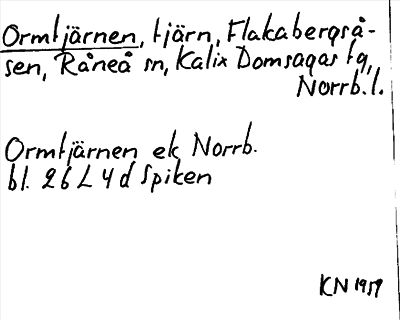 Ormtjärnen, tjärn, Flakabergså-
sen, Råneå sn, Kalix Domsagas tg,
Norrb.l.
Ormtjärnen ek Norrb.
bl. 26 L 4 d Spiken
KN 1959